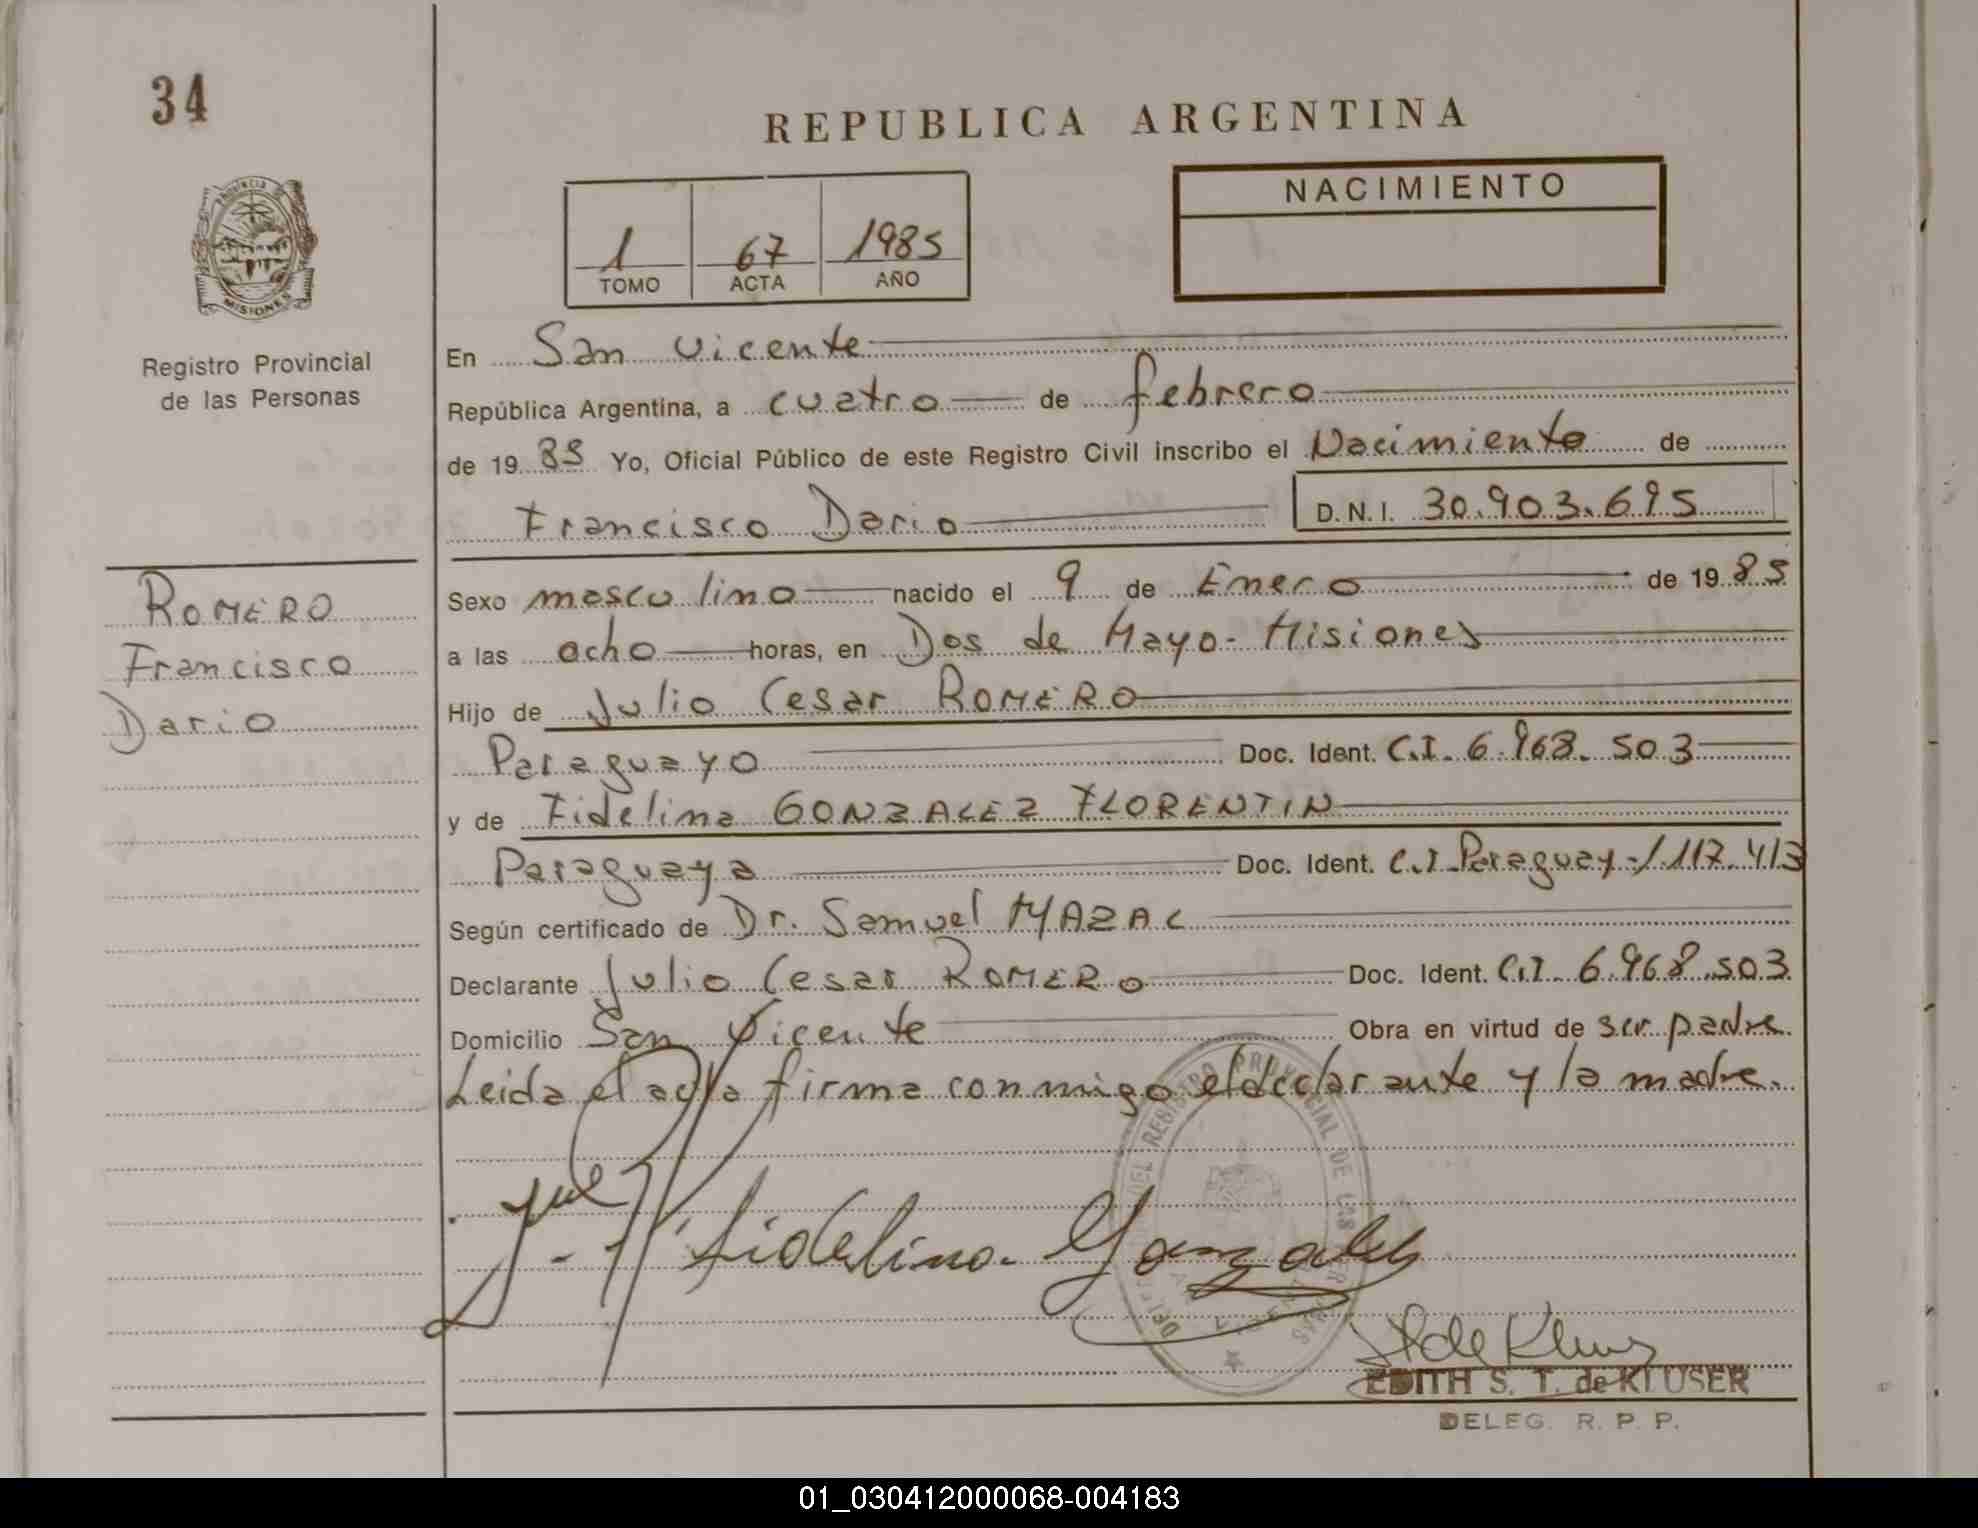 34
REPUBLICA ARGENTINA
PROVINCIA DE
MISIONES
Registro Provincial
de las Personas
1 67 1985
TOMO ACTA AÑO
NACIMIENTO
En San Vicente
República Argentina, a cuatro de febrero
de 19 85 Yo, Oficial Público de este Registro Civil inscribo el Nacimiento de
Francisco Dario D.N.I. 30.903.695
ROMERO
Francisco
Dario
Sexo masculino nacido el 9 de Enero de 19 85
a las ocho horas, en Dos de Mayo - Misiones
Hijo de Julio Cesar ROMERO
Paraguayo Doc. Ident. C.I. 6.968.503
y de Fidelina GONZALEZ FLORENTIN
Paraguaya Doc. Ident. C.I. Paraguay 1.117.413
Según certificado de Dr. Samuel MAZAL
Declarante Julio Cesar ROMERO Doc. Ident. C.I. 6.968.503
Domicilio San Vicente Obra en virtud de ser padre.
Leida el acta firma conmigo el declarante y la madre.
DEL REGISTRO PROVINCIAL DE LAS PERSONAS
Fidelina Gonzalez
EDITH S. T. de KLUSER
DELEG. R. P. P.
01_030412000068-004183